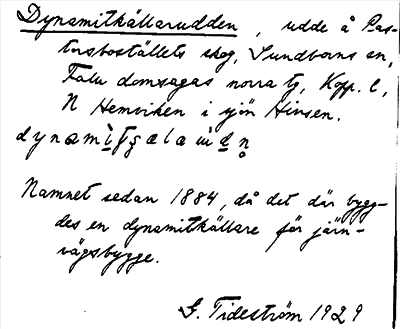 Dynamitkällarudden, udde å Pas-
torsboställets skog, Sundborns sn,
Falu domsagas norra tg, Kopp. l,
N Hemviken i sjön Hinsen.
Namnet sedan 1884, då det där bygg-
des en dynamitkällare för järn-
vägsbygge.
G. Tideström 1929